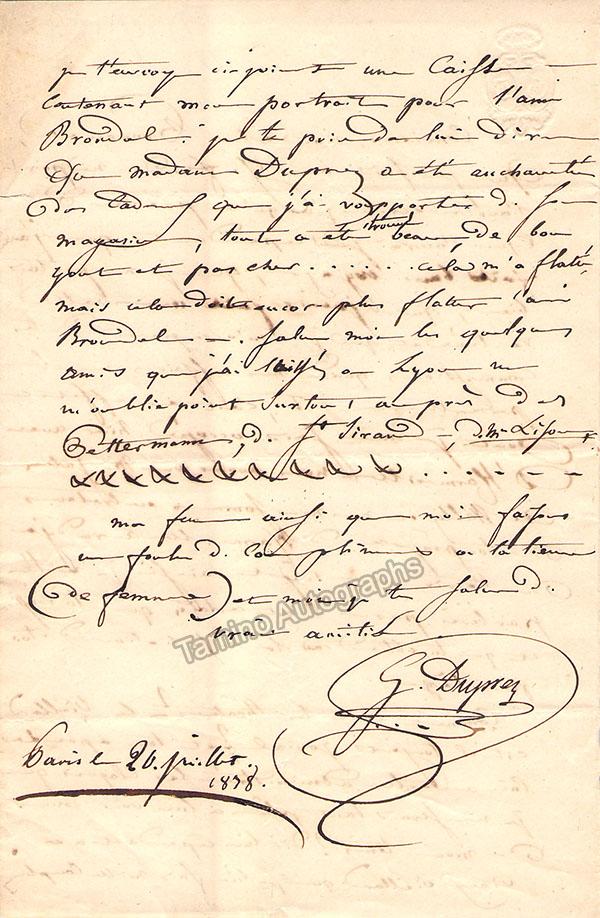 je t'envoy ci joint une Caisse
contenant mon portrait pour l'ami
Broudel. je te prie de lui dire
que madame Duprez a été enchantée
des que j'ai rapportés de son
magasin, tout a été trouvé beau de bon
gout et pas cher...... cela m'a flaté,
mais cela doit encor plus flatter l'ami
Broudel —. Salue moi les quelques
amis que j'ai laissés a Lyon ne
m'oublie point surtout auprès des
Pettermann, d. St Siran —,
ma femme ainsi que moi faisons
une foule d. complimens a la tienne
(de femme) et moi je te salue d.
vraie amitié
G. Duprez
Paris le 20 juillet
1838.
Tamino Autographs